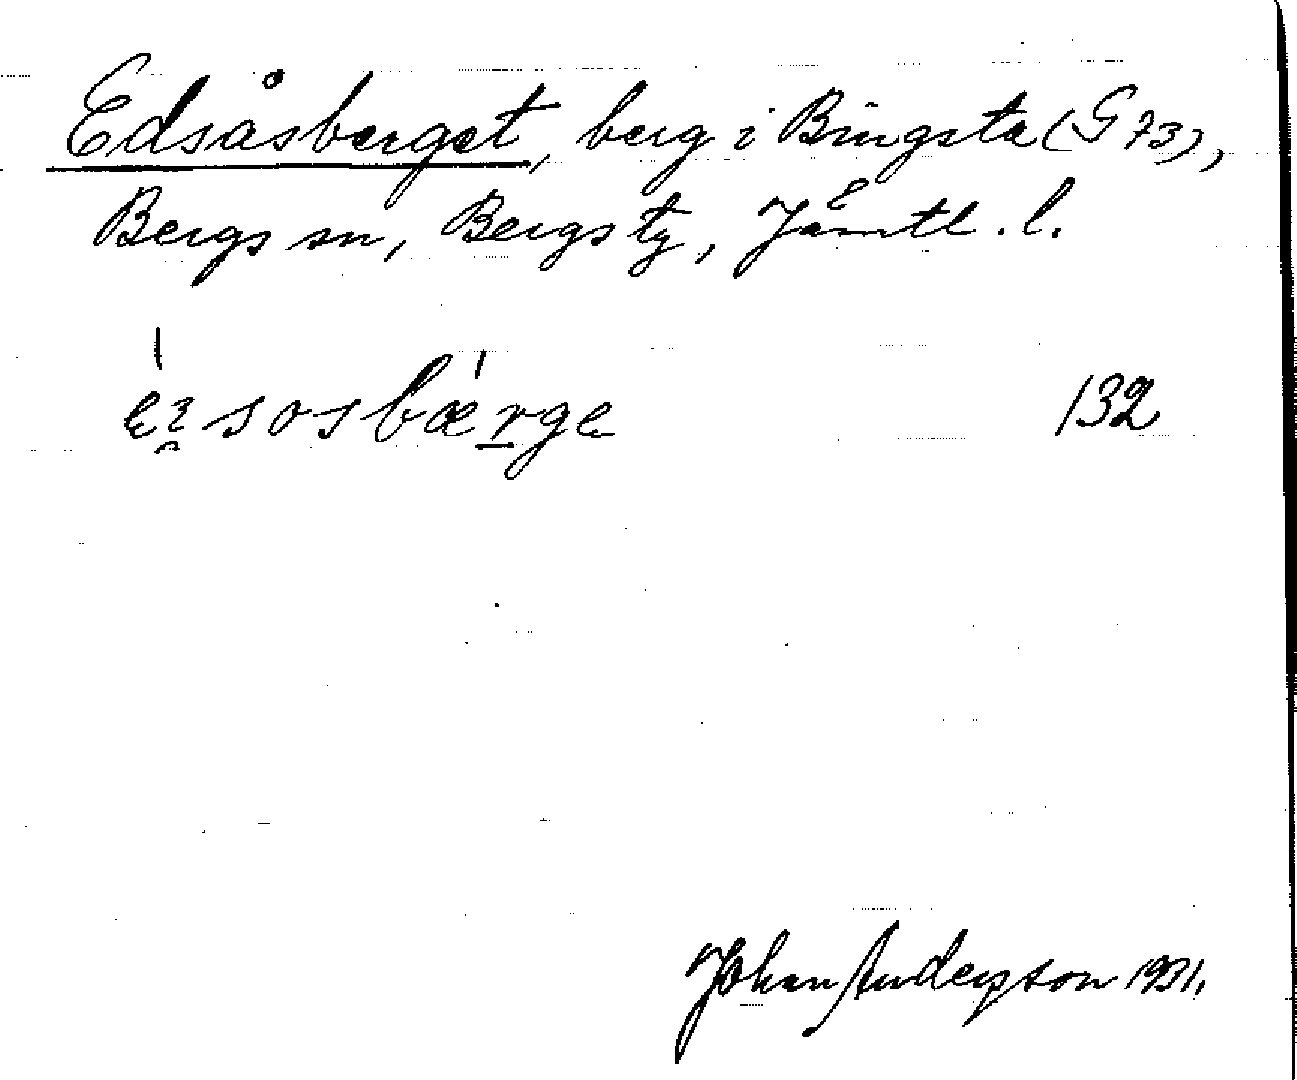 Edsåsberget, berg i Bingsta (G 73),
Bergs sn, Bergs tg, Jämtl. l.
132
Johan Anderzson 1931.